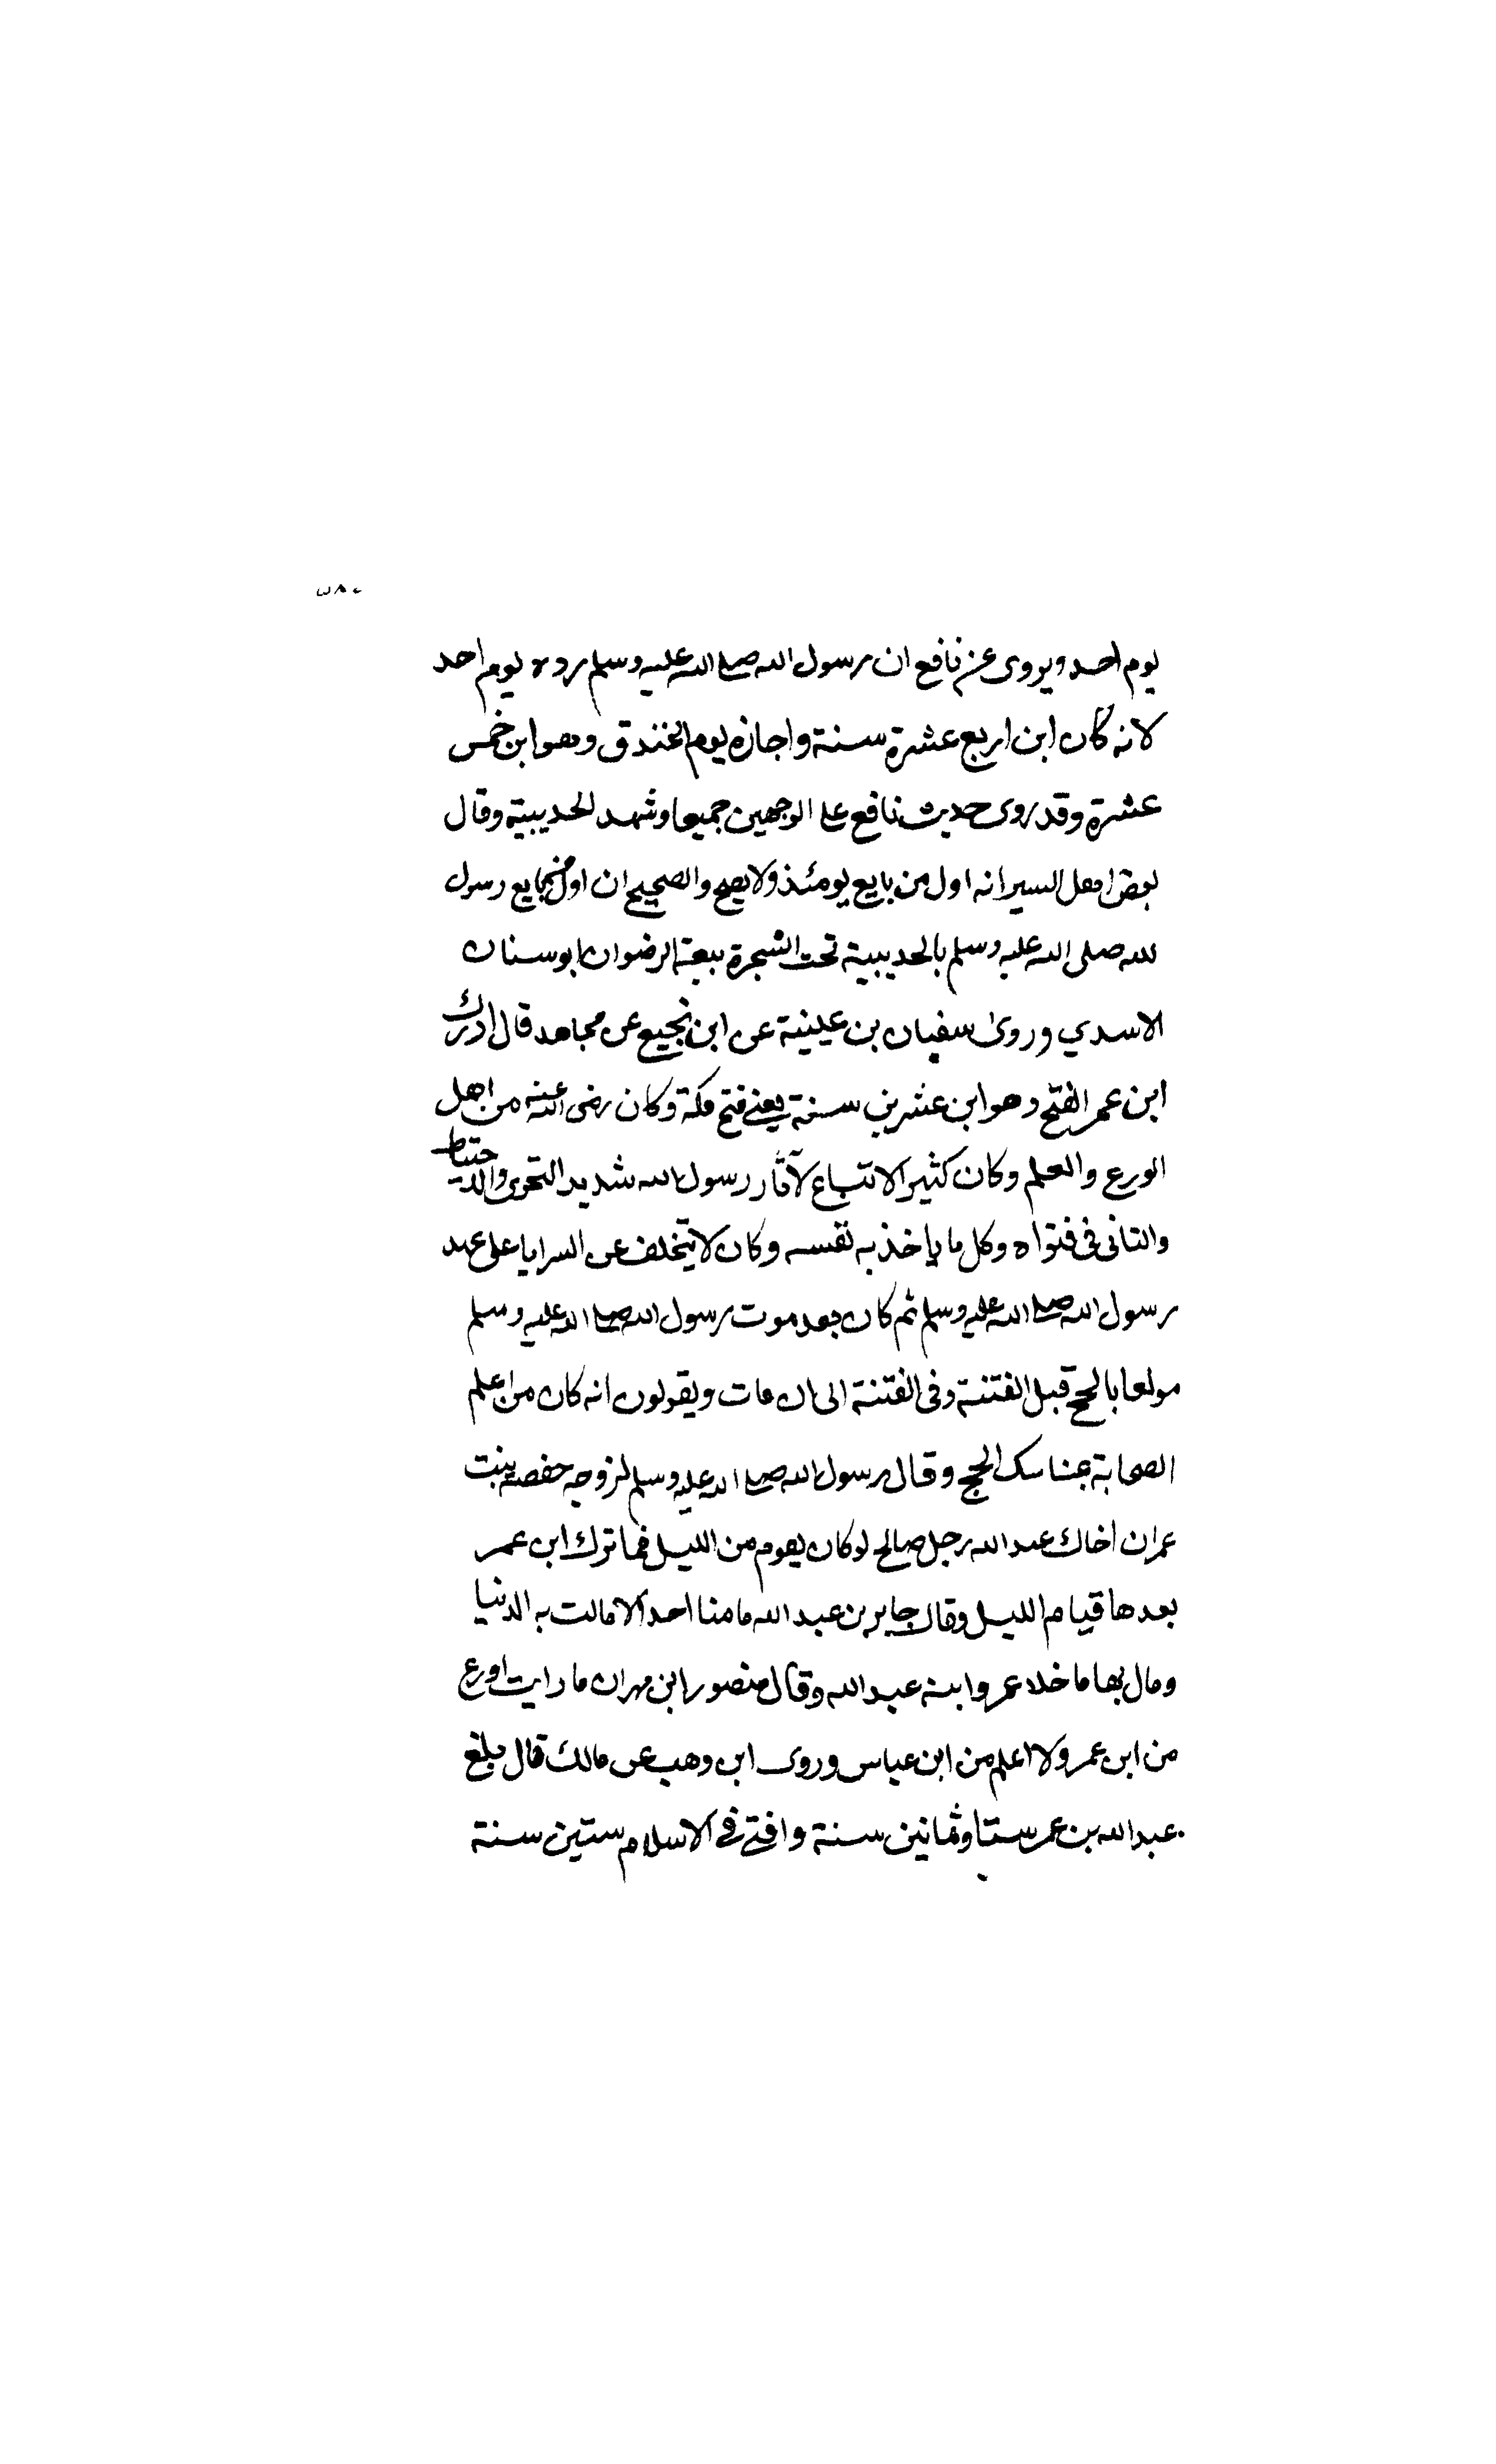 ٣٨٠
يوم احد ويروى عن نافع ان رسول الله صلى الله عليه وسلم رده يوم احد
لانه كان ابن اربع عشرة سنة واجازه يوم الخندق وهو ابن خمس
عشرة وقد روى حديث نافع على الوجهين جميعا وشهد الحديبية وقال
بعض اهل السير انه اول من بايع يومئذ ولا يصح والصحيح ان اول من بايع رسول
لله صلى الله عليه وسلم بالحديبية تحت الشجرة بيعة الرضوان ابو سنان
الاسدي وروى سفيان بن عيينة عن ابن نجيع عن مجاهد قال ادرك
ابن عمر الفتح وهو ابن عشرين سنة يعنے فتح مكة وكان رضى الله عنه من اهل
الورع والعلم وكان كثير الاتباع لآثار رسول لله شديد التحرى والاحتياط
والتانى فى فتواه وكل ما ياخذ به نفسه وكان لا يتخلف عن السرايا على عهد
رسول الله صلى الله عليه وسلم ثم كان بعد موت رسول الله صلى الله عليه وسلم
مولعا بالحج قبل الفتنة وفى الفتنة الى ان مات ويقولون انه كان من اعلم
الصحابة بمناسك الحج وقال رسول الله صلى الله عليه وسلم لزوجه حفصة بنت
عمر ان اخاك عبد الله رجل صالح لو كان يقوم من الليل فما ترك ابن عمر
بعدها قيام الليل وقال جابر بن عبد الله ما منا احد الا مالت به الدنيا
ومال بها ما خلا عمر وابنه عبد الله وقال منصور ابن مهران ما رايت اورع
من ابن عمر ولا اعلم من ابن عباس وروى ابن وهب عن مالك قال بلغ
عبد الله بن عمر ستا وثمانين سنة وافتے فے الاسلام ستين سنة